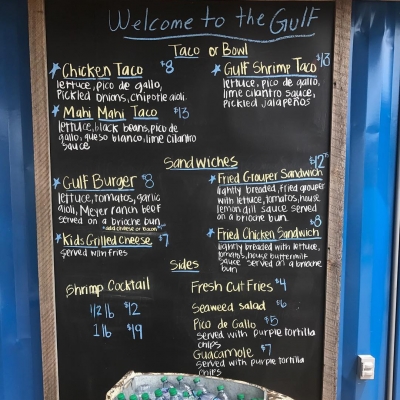 Welcome to the Gulf
Taco or Bowl
Chicken Taco $8
lettuce, pico de gallo,
Pickled onions, chipotle aioli
Mahi Mahi Taco $13
lettuce, black beans, pico de
gallo, queso blanco, lime cilantro
sauce
Gulf Shrimp Taco $13
lettuce, pico de gallo,
lime cilantro sauce,
pickled jalapeños
Sandwiches
Gulf Burger $8
lettuce, tomatoes, garlic
aioli, Meyer ranch beef
served on a brioche bun
*add cheese or bacon
Kids Grilled Cheese $7
served with fries
$12
Fried Grouper Sandwich
lightly breaded, fried grouper
with lettuce, tomatoes, house
lemon dill sauce served
on a brioche bun
$8
Fried Chicken Sandwich
lightly breaded with lettuce,
tomato, house buttermilk
sauce served on a brioche
bun
Sides
Shrimp Cocktail
1/2 lb $12
1 lb $19
Fresh Cut Fries $4
Seaweed Salad $6
Pico de Gallo $5
served with purple tortilla
chips
Guacamole $7
served with purple tortilla
chips